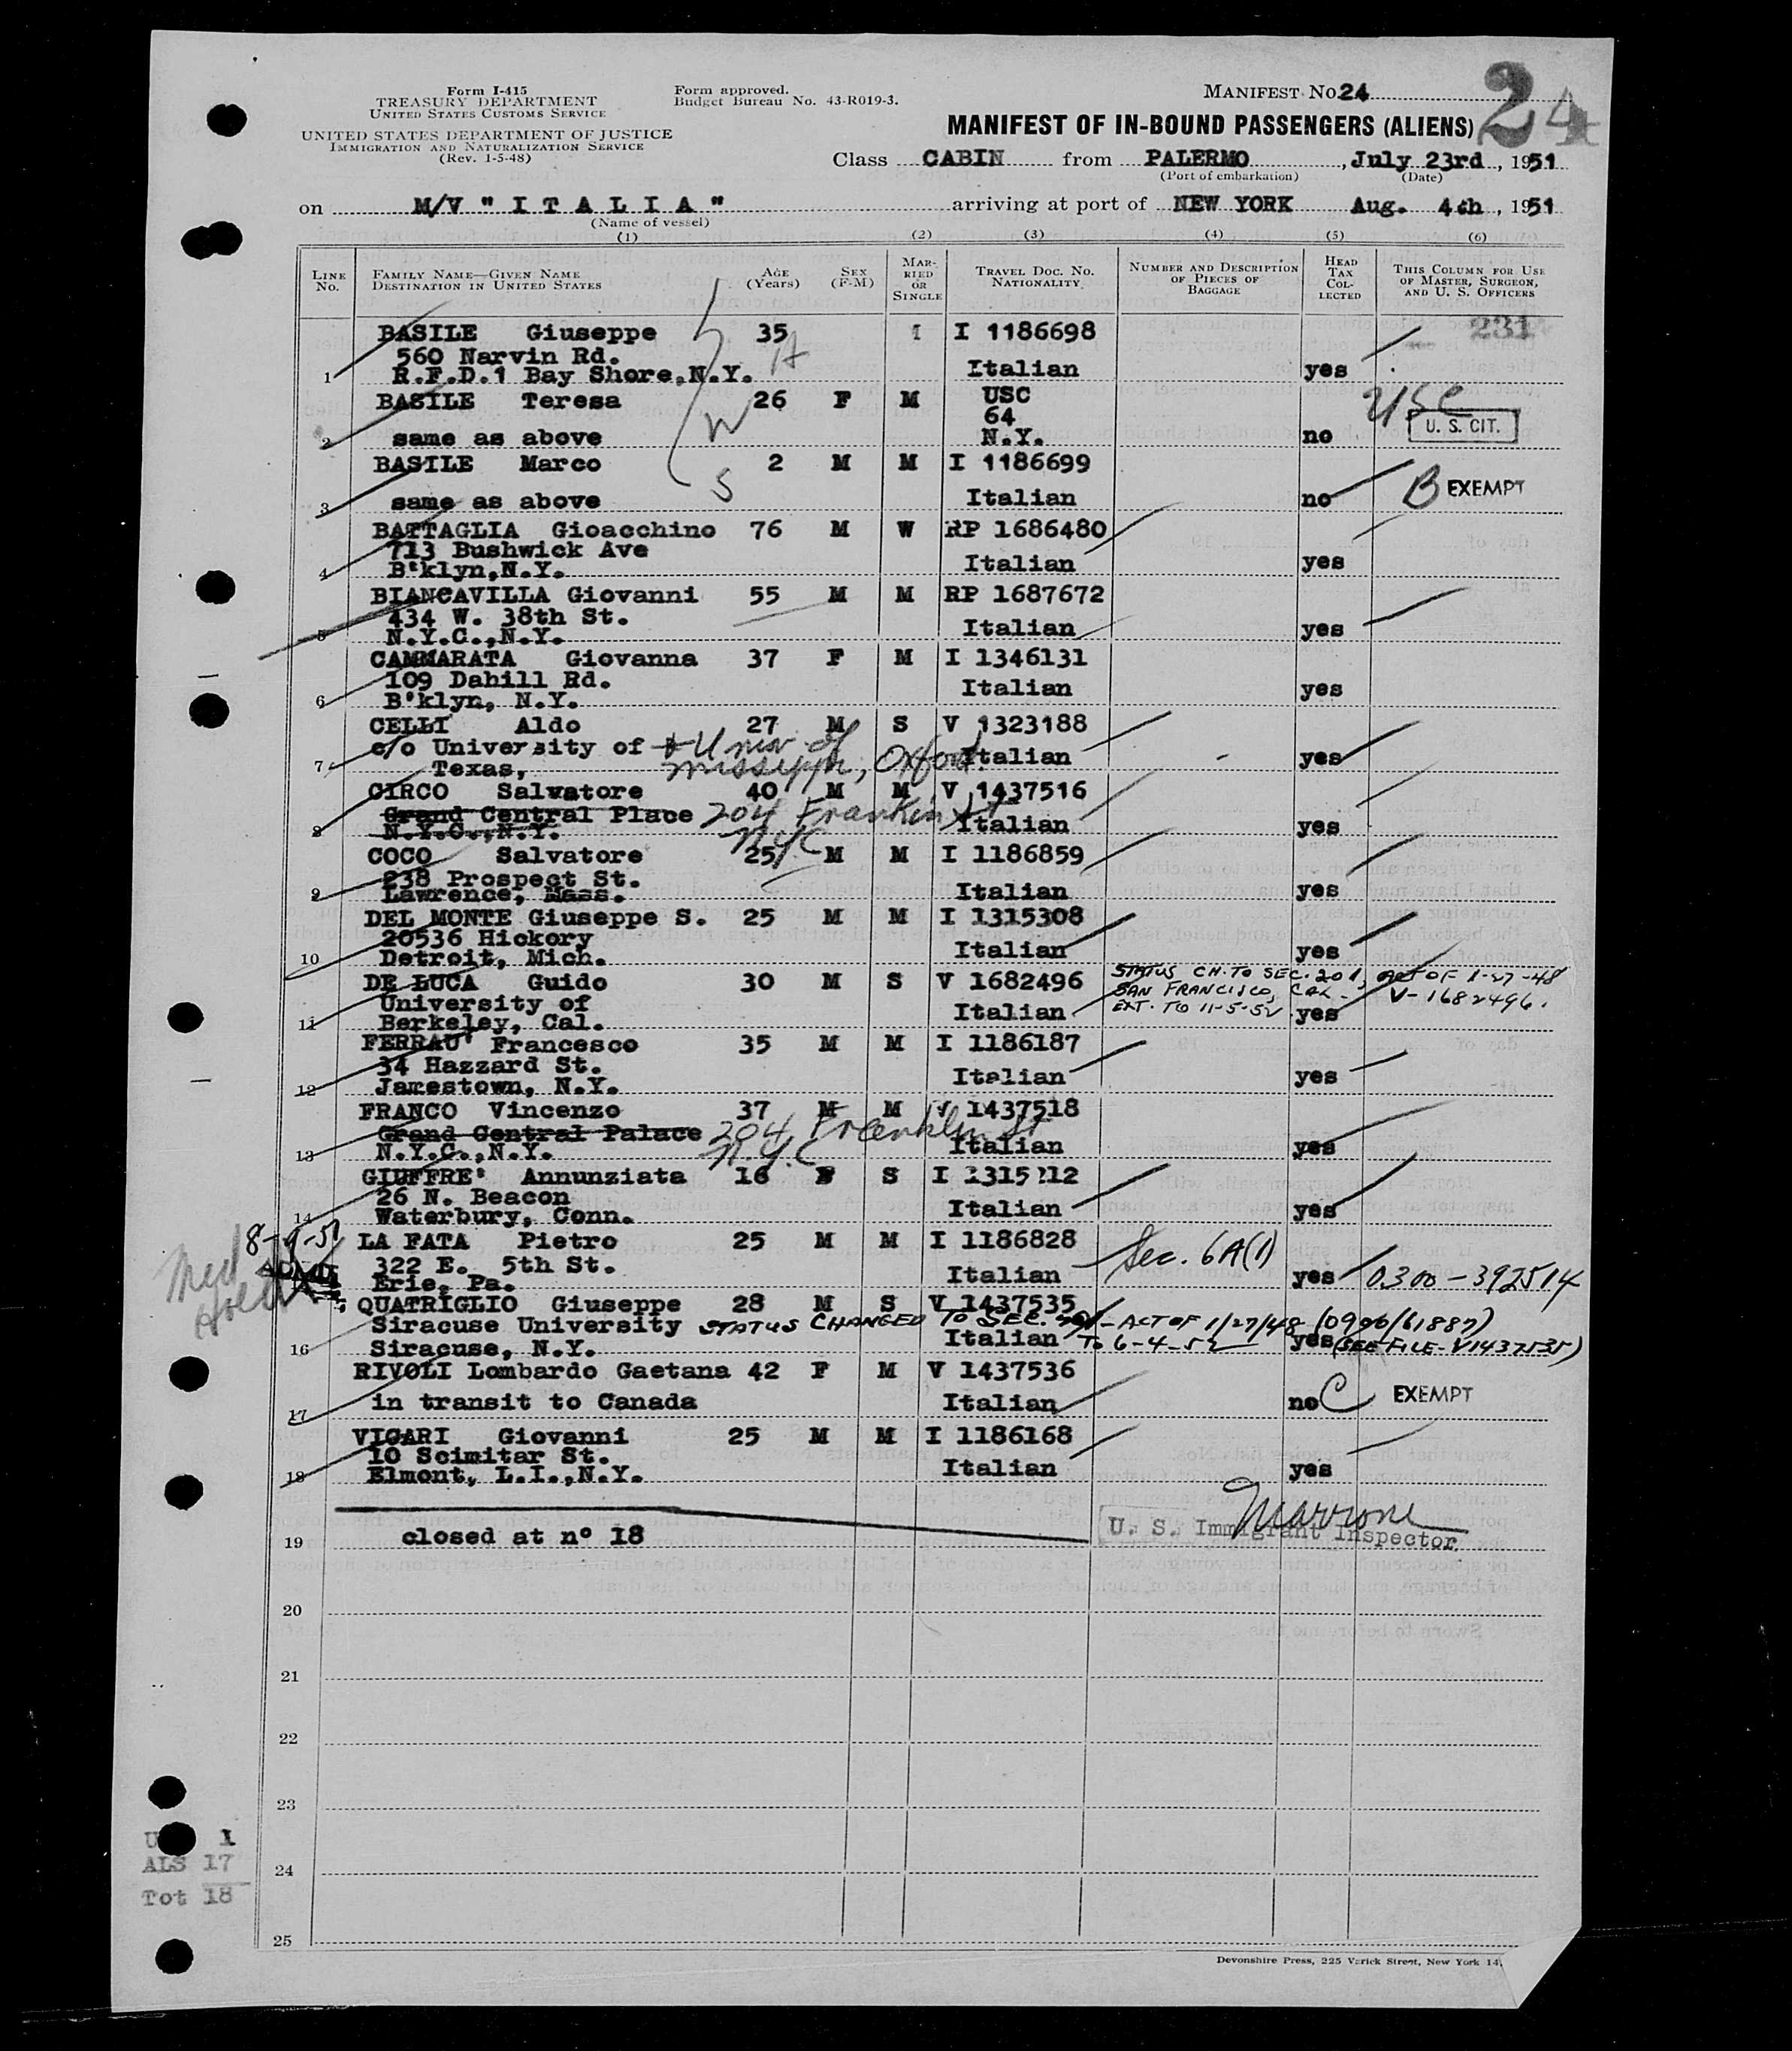 Form I-415
TREASURY DEPARTMENT
UNITED STATES CUSTOMS SERVICE
UNITED STATES DEPARTMENT OF JUSTICE
IMMIGRATION AND NATURALIZATION SERVICE
(Rev. 1-5-48)
Form approved.
Budget Bureau No. 43-R019-3.
MANIFEST No. 24
24
MANIFEST OF IN-BOUND PASSENGERS (ALIENS)
Class CABIN from PALERMO, July 23rd, 1951
(Port of embarkation) (Date)
on M/V "ITALIA" arriving at port of NEW YORK Aug. 4th, 1951
(Name of vessel)
(1) (2) (3) (4) (5) (6)
LINE No. FAMILY NAME—GIVEN NAME DESTINATION IN UNITED STATES AGE (Years) SEX (F-M) MARRIED OR SINGLE TRAVEL DOC. No. NATIONALITY NUMBER AND DESCRIPTION OF PIECES OF BAGGAGE HEAD TAX COLLECTED THIS COLUMN FOR USE OF MASTER, SURGEON, AND U. S. OFFICERS
BASILE Giuseppe 35 I 1186698 231
560 Narvin Rd. H
1 R.F.D.1 Bay Shore,N.Y. Italian yes
BASILE Teresa 26 F M USC usc
W 64 U. S. CIT.
2 same as above N.Y. no
BASILE Marco 2 M M I 1186699
S B EXEMPT
3 same as above Italian no
BATTAGLIA Gioacchino 76 M W RP 1686480
713 Bushwick Ave
4 B'klyn,N.Y. Italian yes
BIANCAVILLA Giovanni 55 M M RP 1687672
434 W. 38th St.
5 N.Y.C.,N.Y. Italian yes
CAMMARATA Giovanna 37 F M I 1346131
109 Dahill Rd.
6 B'klyn, N.Y. Italian yes
CELLI Aldo 27 M S V 1323188
c/o University of Univ of
7 Texas, Missippi, Oxford Italian yes
CIRCO Salvatore 40 M M V 1437516
Grand Central Place 204 Frankin St
8 N.Y.C.,N.Y. NYC Italian yes
COCO Salvatore 25 M M I 1186859
238 Prospect St.
9 Lawrence, Mass. Italian yes
DEL MONTE Giuseppe S. 25 M M I 1315308
20536 Hickory
10 Detroit, Mich. Italian yes
DE LUCA Guido 30 M S V 1682496 STATUS CH. TO SEC. 201, ACT OF 1-27-48
University of SAN FRANCISCO, CAL - V-1682496.
11 Berkeley, Cal. Italian EXT. TO 11-5-52 yes
FERRAU' Francesco 35 M M I 1186187
34 Hazzard St.
12 Jamestown, N.Y. Italian yes
FRANCO Vincenzo 37 M M V 1437518
Grand Central Palace 204 Franklin St
13 N.Y.C.,N.Y. N.Y.C Italian yes
GIUFFRE' Annunziata 16 F S I
26 N. Beacon
14 Waterbury, Conn. Italian yes
LA FATA Pietro 25 M M I 1186828
322 E. 5th St. Sec. 6A(1)
Med Held ADMD Erie, Pa. Italian yes 0300-392514
QUATRIGLIO Giuseppe 28 M S V 1437535
Siracuse University STATUS CHANGED TO SEC. 201 - ACT OF 1/27/48 (0900/61887)
16 Siracuse, N.Y. Italian TO 6-4-52 yes (SEE FILE-V1437535)
RIVOLI Lombardo Gaetana 42 F M V 1437536
17 in transit to Canada Italian no C EXEMPT
VICARI Giovanni 25 M M I 1186168
10 Scimitar St.
18 Elmont, L.I.,N.Y. Italian yes
Marrone
19 closed at n° 18 U. S. Immigrant Inspector
20
21
22
23
1
24 ALS 17
Tot 18
25
Devonshire Press, 225 Varick Street, New York 14,